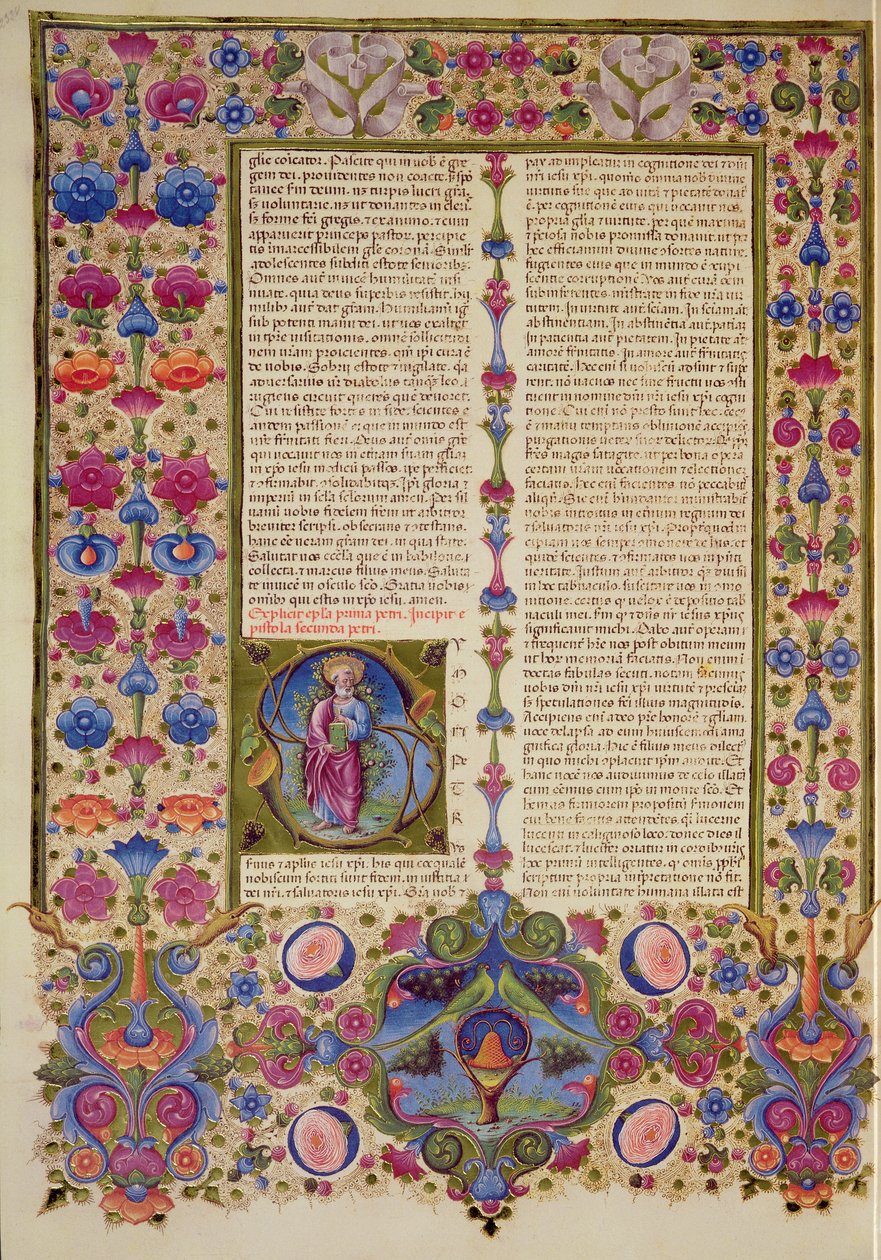 glie coĩcator. Pascite qui in vob̃ ẽ gre
gem dei. providentes non coacte. sʒ spõ
tanee s̃m deum. neq̃ turpis lucri gr̃a.
sʒ voluntarie. neq̃ ut dominantes in cleris.
sʒ forme facti gregis. & ex animo. & cum
apparuerit princeps pastor. percipie
tis inmarcessibilem glorie coronã. Similiter
adolescentes subditi estote seniorib.
Omnes autẽ invicẽ humilitatẽ insi
nuate. quia deus superbis resistit. hu
milib aut̃ dat gr̃am. Humiliamini igr̃
sub potenti manu dei. ut vos exaltet
in tp̃re visitationis. omnẽ sollicitudi
nem vr̃am proicientes. qm̃ ip̃i cura ẽ
de vobis. Sobrii estote & vigilate. q̃a
adversarius vr̃ diabolus tamq̃ leo
rugiens circuit querẽs quẽ devoret.
Cui resistite fortes in fide. scientes e
andem passionẽ ei que in mundo est
vr̃e fr̃nitati fieri. Deus aut̃ omnis gr̃e
qui vocavit nos in eternam suam gl̃iam
in xp̃o iesu modicũ passos. ip̃e perficiet
& confirmabit. solidabitq̃. Ipsi gloria &
imperiũ in secl̃a seculorum amen. Per sil
vanũ vobis fidelem fr̃em ut arbitror
breviter scripsi. obsecrans & testans.
hanc eẽ veram gr̃am dei. in qua statis.
Salutat vos eccl̃a que ẽ in babilone.
collecta. & marcus filius meus. Saluta
te invicẽ in osculo sc̃o. Gratia vobis
omnib qui estis in xp̃o iesu. amen.
Explicit epl̃a prima petri. Incipit e
pistola secunda petri.
S
Y
M
O
N
P
E
T
R
V
servus & aplus iesu xp̃i. his qui coequalẽ
nobiscum sortiti sunt fidem. in iustitia
dei nr̃i. & salvatoris iesu xp̃i. Gr̃a vob̃ &
pax adimpleatur in cognitione dei & dñi
nr̃i iesu xp̃i. quomõ omnia nob̃ divine
virtutis sue que ad vitã & pietatẽ donata
ẽ. per cognitionẽ eius qui vocavit nos.
propria gl̃ia & virtute. per quẽ maxima
& preciosa nobis promissa donavit. ut p̃
hec efficiamini divine cõsortes nature.
fugientes eius que in mundo ẽ cõcupi
scentie corruptionẽ. Vos aut̃ curã oẽm
subinferentes. ministrate in fide vr̃a vir
tutem. In virtute aut̃ sciam. In sciam aut̃
abstinentiam. In abstinentia aut̃ patiam.
In patientia aut̃ pietatem. In pietate aut̃
amorẽ fr̃nitatis. In amore aut̃ fr̃nitatis
caritatem. Hec eni si vobiscũ adsint & supe
rent. nõ vacuos nec sine fructu vos cõst
ituent. in dñi nr̃i iesu xp̃i cogni
tione. Cui eni nõ presto sunt hec. cecus
ẽ & manu temptans. oblivionẽ accipiẽs
purgationis veterũ suorum delictorum. Qua͂pr̃
fr̃es magis satagite. ut per bona opera
certam vr̃am vocationem & electionẽ
faciatis. Hec eni facientes nõ peccabitis
aliqñ. Sic eni habundanter ministrabitur
vobis introitus in eternum regnum dñi nr̃i
& salvatoris iesu xp̃i. Propter quod in
cipiam vos semper cõmonere de his. et
quidẽ scientes. & confirmatos vos in pñti
veritate. Iustum aut̃ arbitror q̃diu sum
in hoc tabernaculo. suscitare vos in cõmo
nitione. certus q̃ velox ẽ depositio tab
naculi mei. s̃m q̃ & dñs nr̃ iesus xp̃us
significavit michi. Dabo aut̃ operam
& frequenter habere vos post obitum meum
ut horum memoriã faciatis. Non eni in
doctas fabulas secuti. notam fecimus
vobis dñi nr̃i iesu xp̃i virtutẽ & presciam
sʒ speculatores facti illius magnitudinis.
Accipiens eni a deo pr̃e honorẽ & gl̃iam.
voce delapsa ad eum huiuscemodi a ma
gnifica gloria. Hic ẽ filius meus dilectus
in quo michi cõplacui. ip̃m audite. Et
hanc vocẽ nos audivimus de celo allatã
cum eẽmus cum ip̃o in monte sc̃o. Et
habemus firmiorem propheticũ sermonem
cui bene facitis attendentes quasi lucerne
lucenti in caliginoso loco. donec dies il
lucescat. & lucifer oriatur in cordib vr̃is
hoc primũ intelligentes. q̃ omnis proph̃ia
scripture propria interpretatione nõ fit.
Non eni voluntate humana allata est